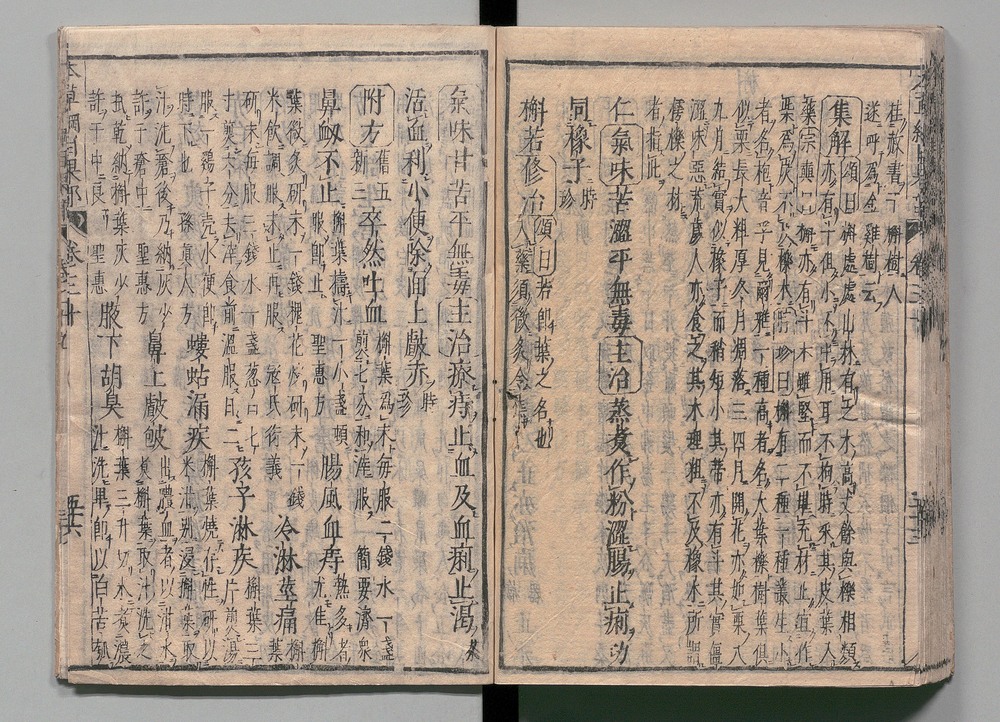 桂赦書于槲樹人
遂呼爲金雞樹云
集解頌曰槲處處山林有之木高丈餘與櫟相類
亦有斗但小不中用耳不拘時采其皮葉入
藥宗奭曰槲亦有斗木雖堅而不堪充材止宜作
柴爲炭不及櫟木時珍曰槲有二種一種叢生小
者名枹音孚見爾雅一種高者名大葉櫟樹葉俱
似栗長大粗厚冬月凋落三四月開花亦如栗八
九月結實似橡子而稍短小其蒂亦有斗其實僵
澀味惡荒歲人亦食之其木理粗不及橡木所謂
樗櫟之材
者指此
仁氣味苦澀平無毒主治蒸煮作粉澀腸止痢功
同橡子時珍
槲若修治頌曰若即葉之名也
入藥須微炙令焦
氣味甘苦平無毒主治療痔止血及血痢止渴
活血利小便除面上皻赤時珍
附方舊五新三卒然吐血槲葉爲末每服二錢水一盞
煎七分和滓服簡要濟衆
鼻衄不止槲葉擣汁一小盞頓服即止聖惠方腸風血痔熱多者尤佳槲
葉微炙研末一錢槐花炒研末一錢
米飲調服未止再服寇氏衍義冷淋莖痛槲葉
研末每服三錢水一盞葱白七
寸煎六分去滓食前溫服日二孩子淋疾槲葉三片煎湯
服一雞子壳小便即
時下也孫眞人方螻蛄漏疾槲葉燒存性研以米泔別浸槲葉取
汁洗瘡後乃納灰少
許于瘡中聖惠方鼻上皻皰出膿血者以泔水煮槲葉取汁洗之
拭乾納槲葉灰少
許于中良聖惠腋下胡臭槲葉三升切水煮濃汁洗畢即以白苦瓠